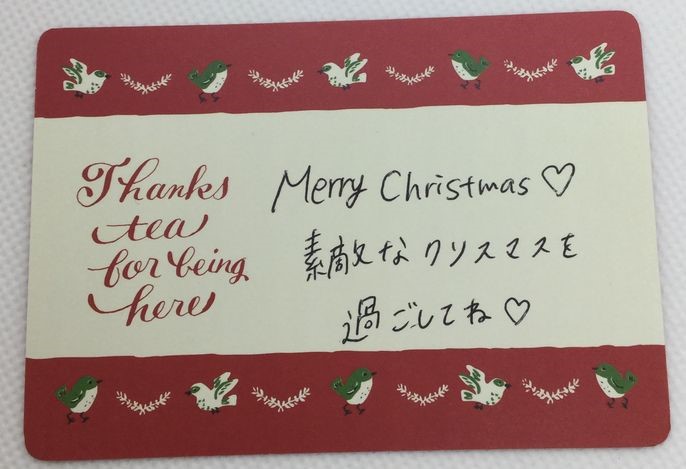 Thanks
tea
for being
here
Merry Christmas♡
素敵なクリスマスを
過ごしてね♡